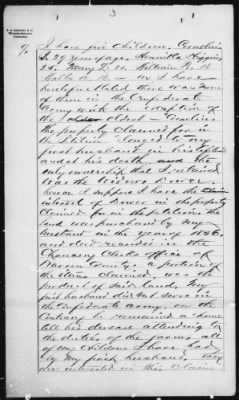 3
9. I have five children. Cornelius
S. 29 years of age, Henrietta Higgins
25, Mary F. 21 William R. 18
as I have
heretofore stated there was none
of them in the Confederate
Army with the exception of
the oldest - Cornelius
the property claimed for in
the petition belonged to my
first husband in his lifetime
and at his death and the
only ownership that I claimed
was the widows Dower
hence I suppose I have the
interest of Dower in the property
claimed for in the petition. the
land was purchased by my
husband in the year of 1846,
and deed recorded in the
Chancery Clerks office of
Warren County. A portion of
the items claimed, was the
product of said land. My
first husband did not serve in
the Confederate army. on the
contrary he remained at home
till his decease attending to
the duties of the farm. all
of my children I have had
by my first husband. They
are interested in this claim